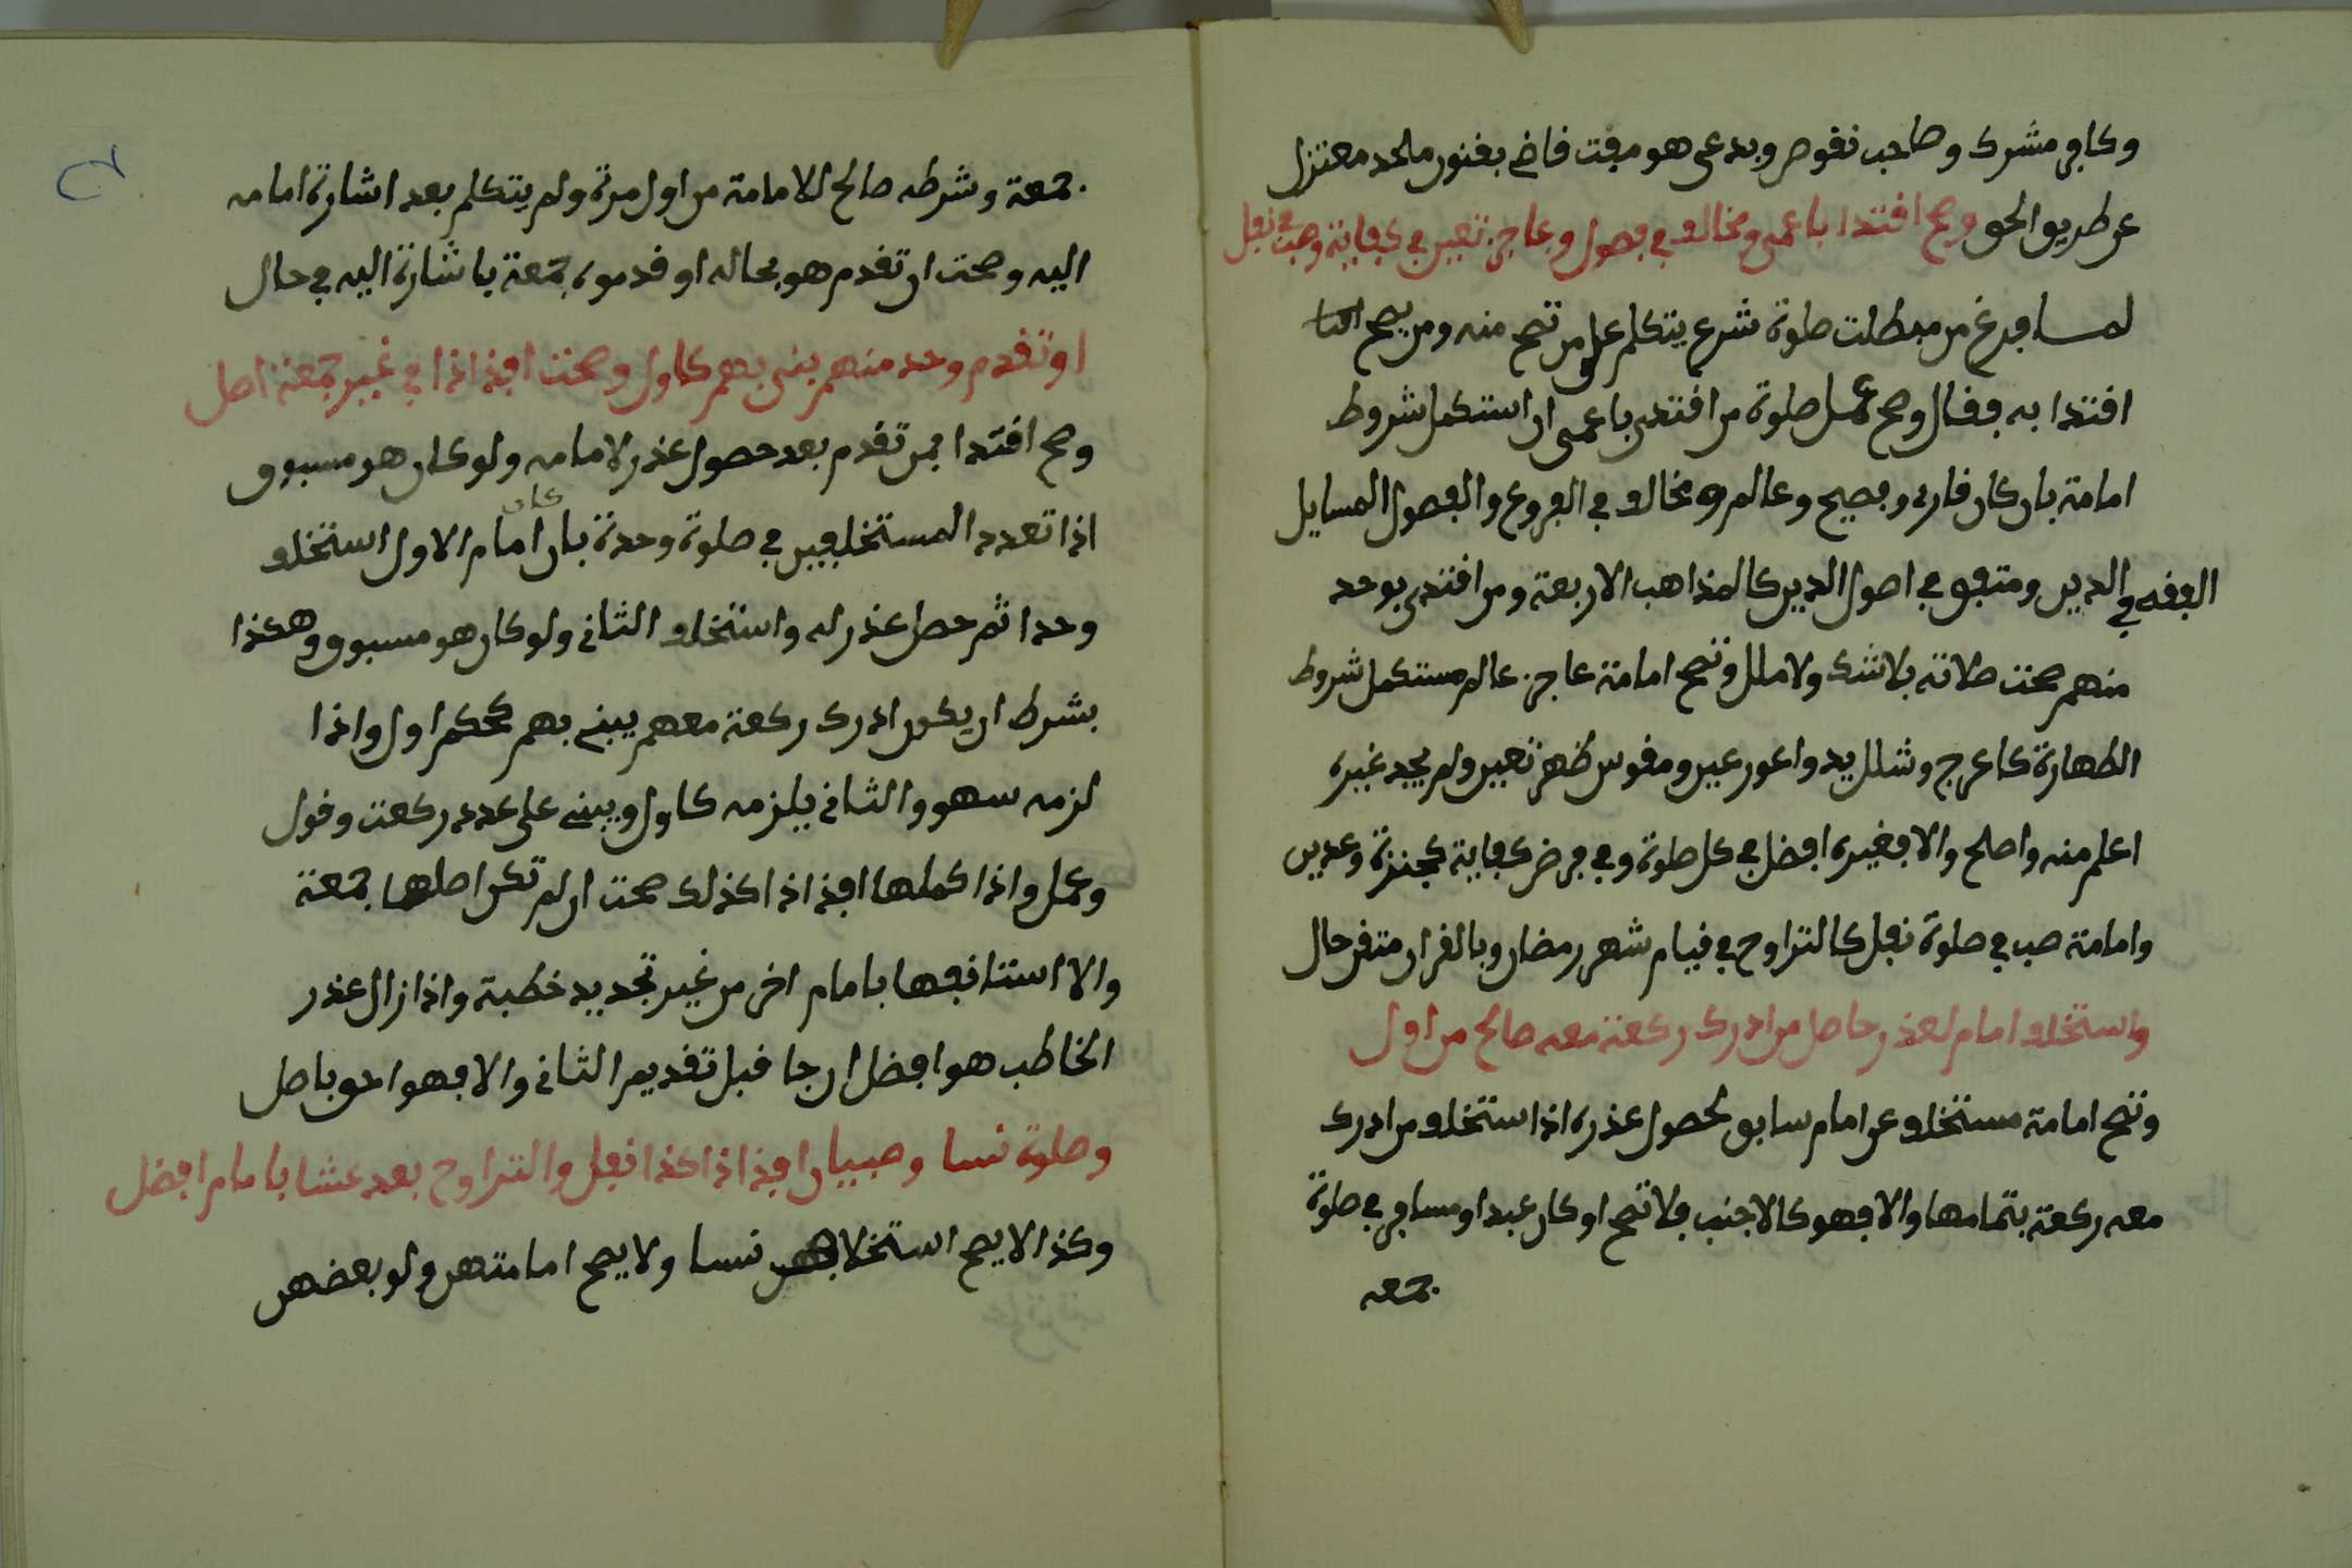 وكافر مشرك وصاحب نفوص وبدعى هو مفت فاض بفنون ملحد معتزل
عن طريق الحق وصح افتدا باعمى ومخالف في فصول وعاجز تعين في كفاية وصبى في نفل
لمــا فرغ من مبطلات صلوة شرع يتكلم على من تصح منه ومن يصح
افتدا به فقال وصح عمل صلوة من افتدى باعمى ان استكمل شروط
امامة بان كان قارى وفصيح وعالم ومخالف في الفروع والفصول المسايل
الفقه في الدين ومتفق في اصول الدين كالمذاهب الاربعة ومن افتدى بوحد
منهم صحت صلاته بلا شك ولا ملل وتصح امامة عاجز عالم مستكمل شروط
الطهارة كاعرج وشلل يد واعور عين ومقوس ظهر تعين ولم يجد غيره
اعلم منه واصلح والا فغيره افضل في كل صلوة وفي فرض كفاية كجنزة وعدين
وامامة صب في صلوة نفل كالتراوح في قيام شهر رمضان وبالقران متقن حال
واستخلف امام لعذر حاصل من ادرك ركعة معه صالح من اول
وتصح امامة مستخلف عن امام سابق لحصول عذره اذا استخلف من ادرك
معه ركعة بتمامها والا فهو كالاجنب فلا تصح او كان عبد او مسافر في صلوة
جمعه
جمعة وشرطه صالح الامامة من اول مرة ولم يتكلم بعد اشارة امامه
اليه وصحت ان تقدم هو بحاله او قدموه جمعة باشارة اليه في حال
او تقدم وحد منهم بنى بهم كاول وصحت افذاذا في غير جمعة اصل
وصح افتدا بمن تقدم بعد حصول عذر لامامه ولو كان هو مسبوق
اذا تعدد المستخلفين في صلوة وحدة بان كان امام الاول استخلف
وحدا ثم حصل عذر له واستخلف الثانى ولو كان هو مسبوق وهكذا
بشرط ان يكون ادرك ركعة معهم يبنى بهم كحكم اول واذا
لزمه سهو والثانى يلزمه كاول ويبنى على عدد ركعت وقول
وعمل واذا كملها افذاذا كذلك صحت ان لم تكن اصلها جمعة
والا استنافها بامام اخر من غير تجديد خطبة واذا زال عذر
الخاطب هو افضل ان جا قبل تقديم الثانى والا فهو احق باصل
وصلوة نسا وصبيان افذاذا كذا نفل والتراوح بعد عشا بامام افضل
وكذا لا يصح استخلافهن نسا ولا يصح امامتهن ولو بعضهن